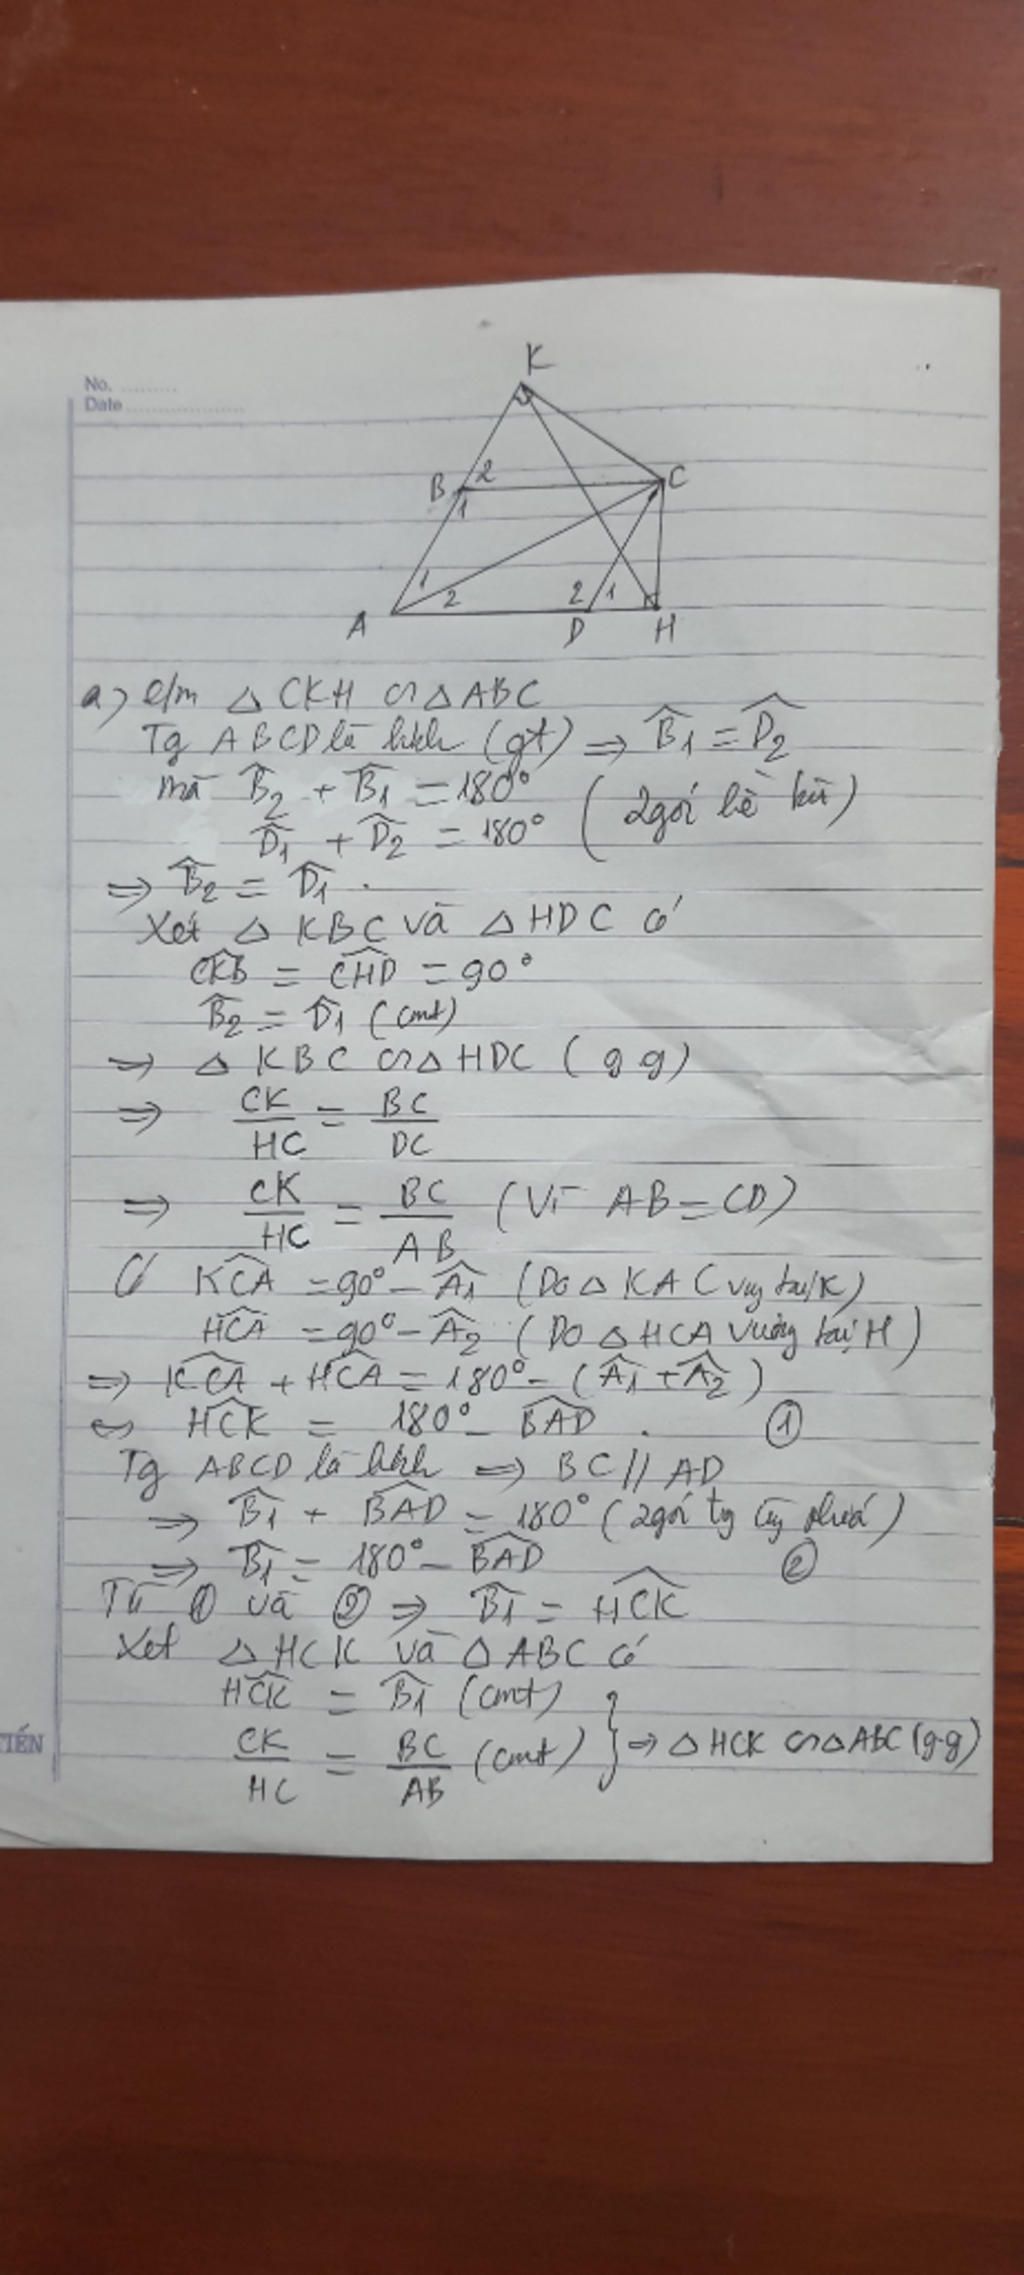 No. ..........
Date ......................
K
B 2 C
1
1
2 2 1
A D H
a) c/m △ CKH ∽ △ ABC
Tg ABCD là hbh (gt) ⇒ B̂1 = D̂2
mà B̂2 + B̂1 = 180° (2 góc kề bù)
D̂1 + D̂2 = 180°
⇒ B̂2 = D̂1.
Xét △ KBC và △ HDC có
CKB̂ = CHD̂ = 90°
B̂2 = D̂1 (cmt)
⇒ △ KBC ∽ △ HDC (g g)
⇒ CK/HC = BC/DC
⇒ CK/HC = BC/AB (Vì AB = CD)
Có KCÂ = 90° - Â1 (Do △ KAC vg tại K)
HCÂ = 90° - Â2 (Do △ HCA vuông tại H)
⇒ KCÂ + HCÂ = 180° - (Â1 + Â2)
⇔ HCK̂ = 180° - BAD̂. ①
Tg ABCD là hbh ⇒ BC // AD
⇒ B̂1 + BAD̂ = 180° (2 góc tg cg phía)
⇒ B̂1 = 180° - BAD̂ ②
Từ ① và ② ⇒ B̂1 = HCK̂
Xét △ HCK và △ ABC có
HCK̂ = B̂1 (cmt)
CK/HC = BC/AB (cmt) } ⇒ △ HCK ∽ △ ABC (g-g)
TIẾN